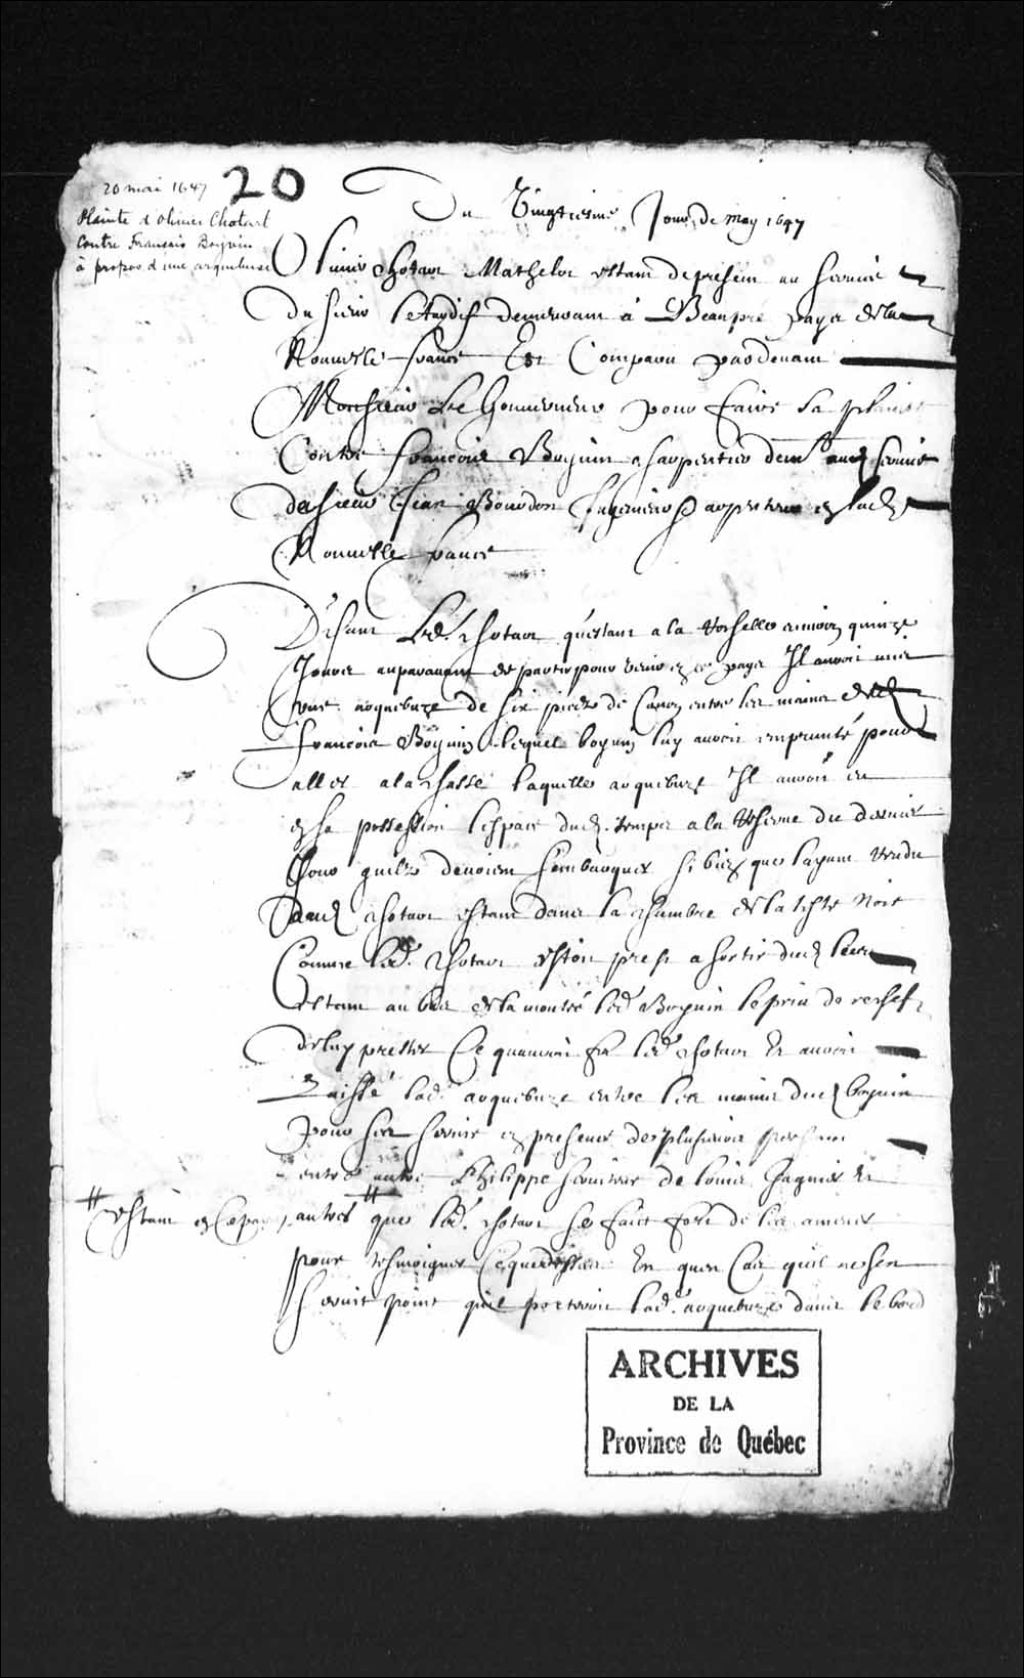 20 mai 1647
Plainte d'Olivier Chotart
Contre Francois Boyvin
à propos d'une arquebuse
20
Du Vingtiesme Jour de May 1647
Olivier Chotart Mathelot estant de present au service
du sieur demeurant à Beaupré pays de la
Nouvelle france Est Comparu pardevant
Monsieur Le Gouverneur pour faire sa plainte
Contre francois Boyvin charpentier aud service
du sieur Jean Bourdon Ingenieur arpenteur en lad
Nouvelle france
Disant Led. Chotart questant a la Rochelle environ quinze
Jours auparavant de partir pour venir en ce pays Il avoit mis
une arquebuze de six pieds de Canon entre les mains dud
francois Boyvin lequel boyvin luy avoit emprunté pour
aller a la chasse laquelle arquebuze Il avoit eu
en sa possession lespace dud. temps a la du dernier
Jour quilz devoient sembarquer si bien que layant rendu
aud Chotart estant dans la chambre de la teste noire
Comme led. Chotart estoit prest a sortir dud lieu
estant au bas de la montée led Boyvin le pria de rechef
de luy prester Ce quauroit fait led Chotart Et avoit
Laissé lad arquebuze entre les mains dud boyvin
pour sen servir en presence de plusieurs personnes
entre autre Philippe serviteur de louis Gagnier Et
# estant en Ce pays, autres # que led. Chotart se faict fort de les amener
pour tesmoigner Ce que dessus En quen Cas quil ne sen
servit point quil porteroit lad. arquebuze dans le bord
ARCHIVES
DE LA
Province de Québec